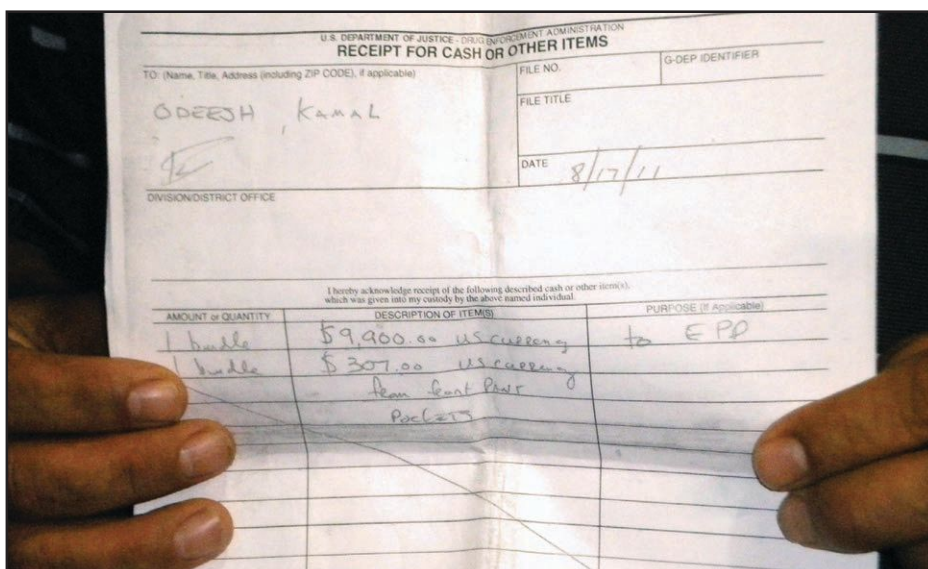 U.S. DEPARTMENT OF JUSTICE - DRUG ENFORCEMENT ADMINISTRATION
RECEIPT FOR CASH OR OTHER ITEMS
TO: (Name, Title, Address (including ZIP CODE), if applicable)
FILE NO.
G-DEP IDENTIFIER
ODEESH, KAMAL
FILE TITLE
DATE 8/17/11
DIVISION/DISTRICT OFFICE
I hereby acknowledge receipt of the following described cash or other item(s),
which was given into my custody by the above named individual.
AMOUNT or QUANTITY DESCRIPTION OF ITEM(S) PURPOSE (If Applicable)
1 bundle $9,900.00 US currency to EPP
1 bundle $307.00 US currency
from front Pant
Pockets